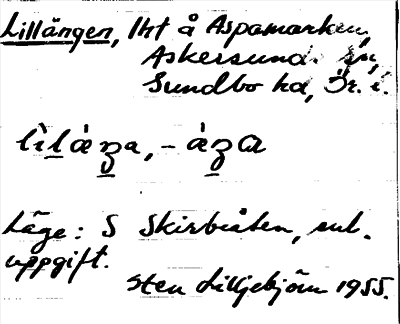 Lillängen, lht å Aspamarken,
Askersunds sn,
Sundbo hd, Ör. l.
lìlàŋa, -àŋa
Läge: S Skirbiåten, enl.
uppgift.
Sten Lilljebjörn 1955.